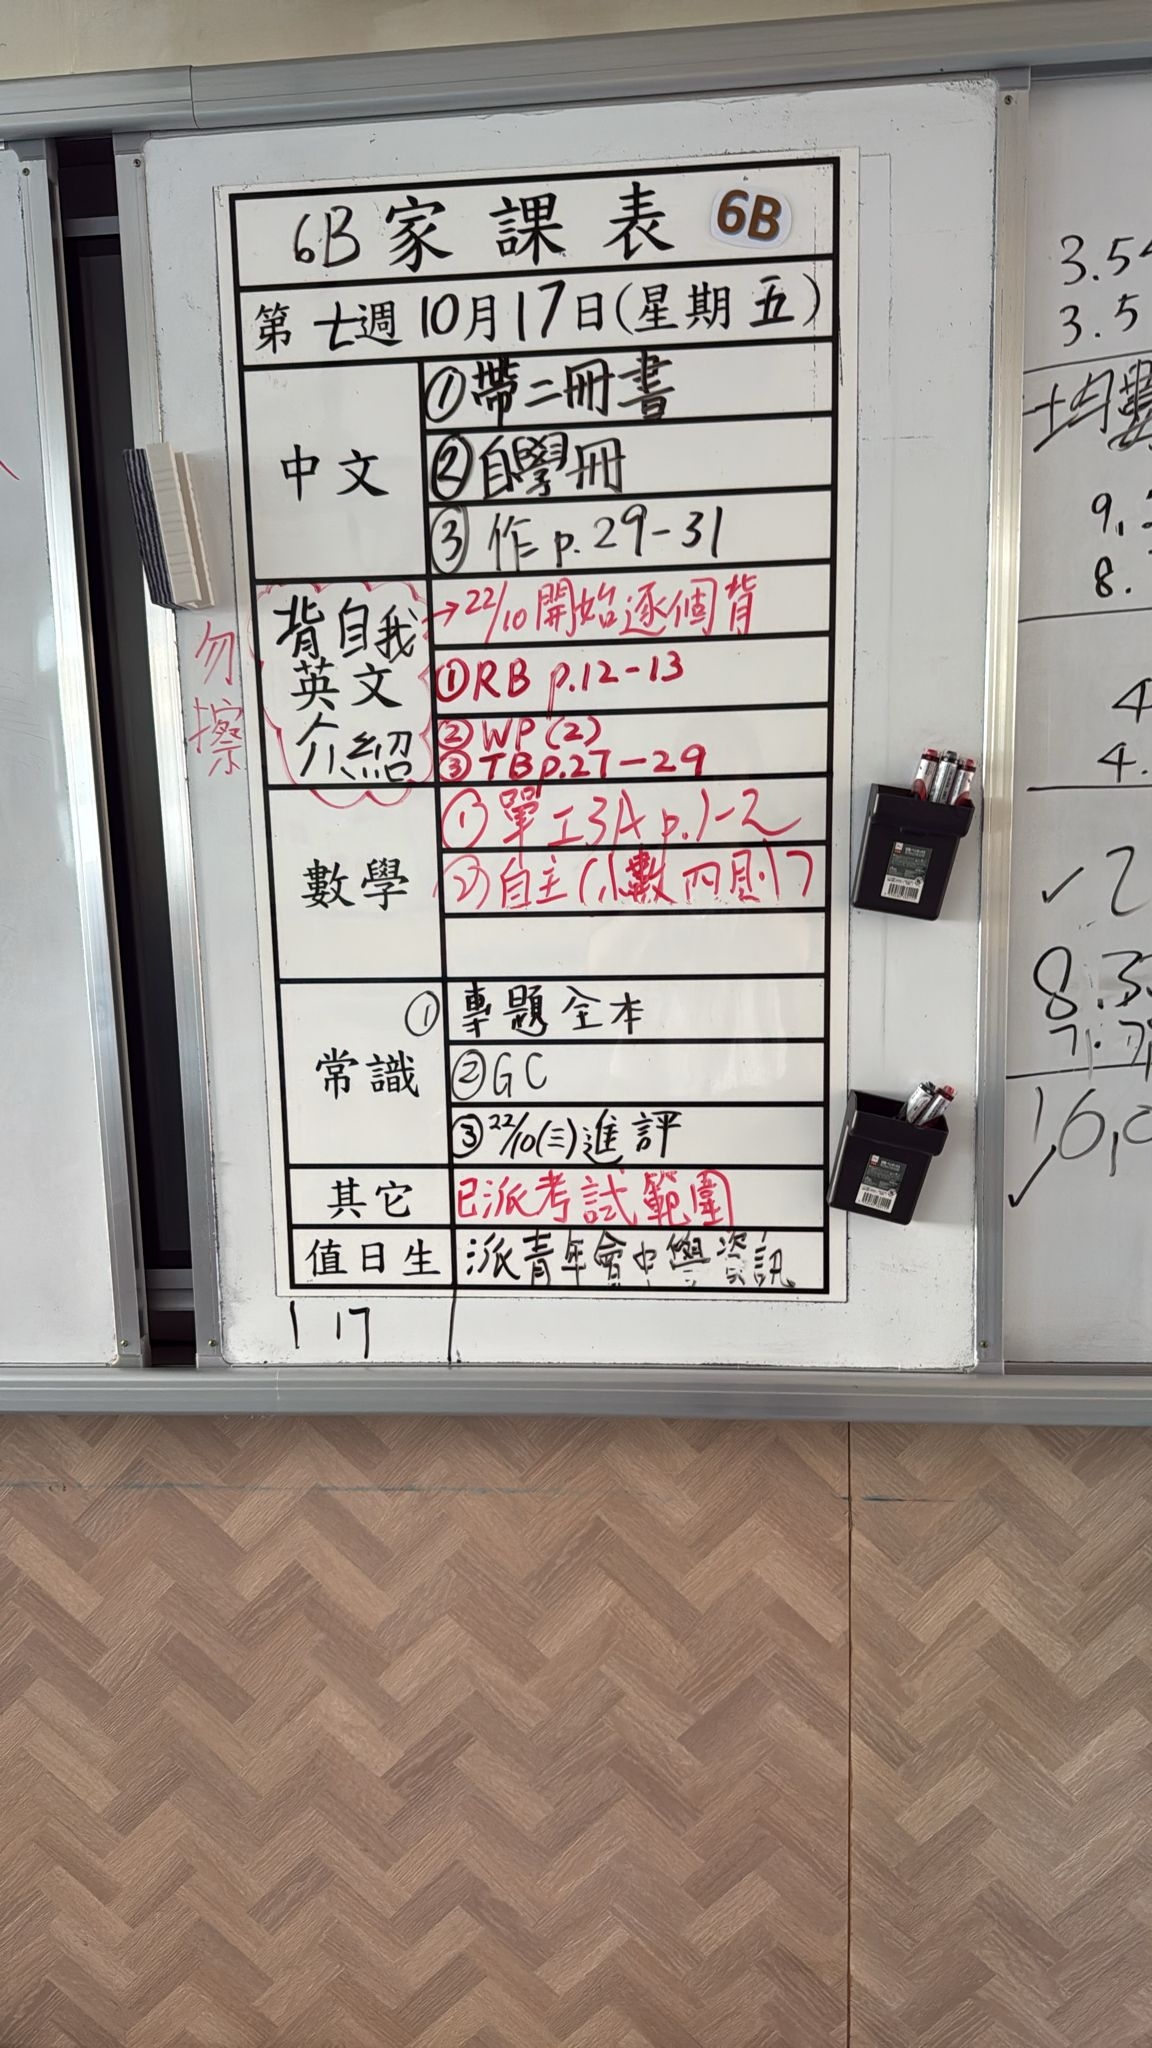 6B家課表 6B
第七週10月17日(星期五)
中文
①帶二冊書
②自學冊
③作p.29-31
背自我
英文
介紹
勿擦
→22/10開始逐個背
①RB p.12-13
②WP(2)
③TBp.27-29
數學
①單工3A p.1-2
②自主(小數四則)
常識
①專題全本
②GC
③22/10(三)進評
其它
已派考試範圍
值日生
派青年會中學資訊
1 17
3.5
3.5
均數
9.
8.
4
4.
✓2
8.3
7.
16.
✓